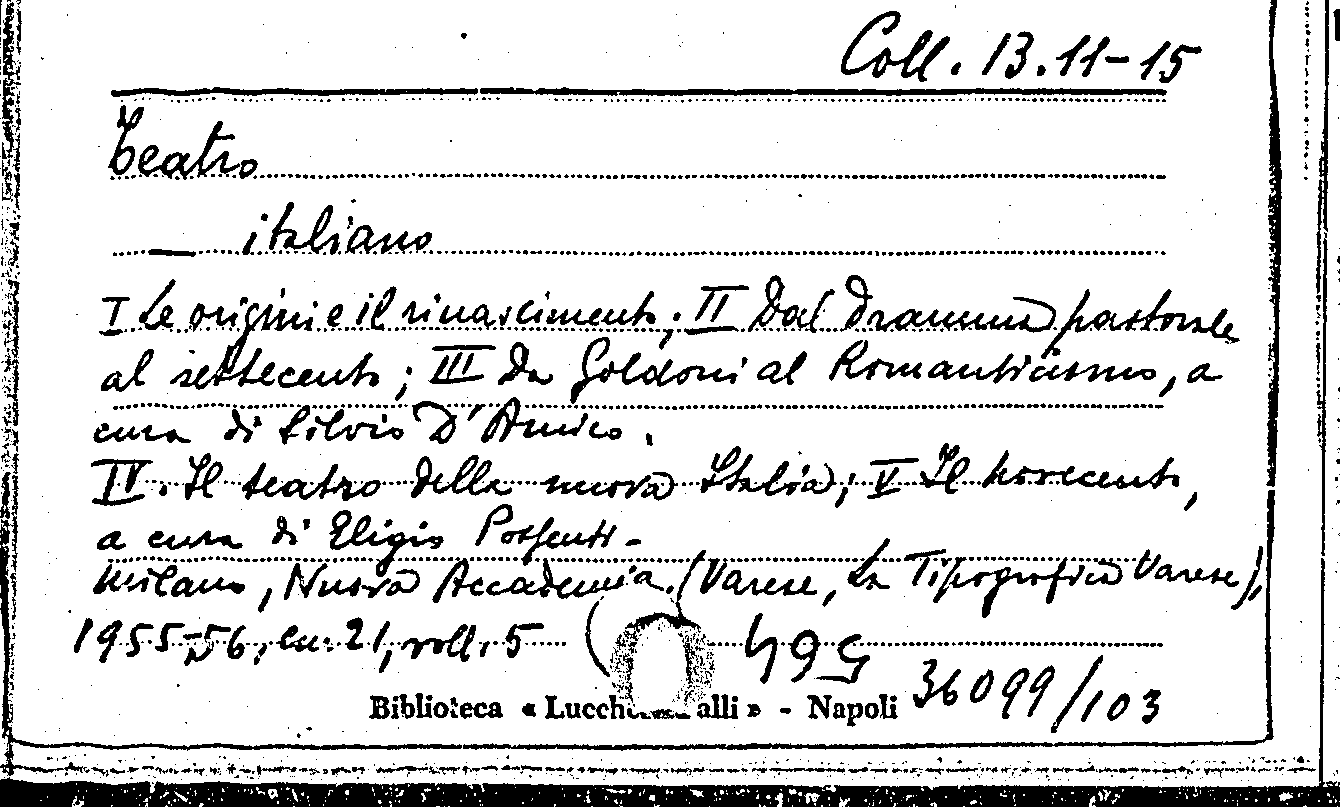 Coll. 13.11-15
Teatro
— italiano
I Le origini e il rinascimento; II Dal dramma pastorale
al settecento; III Da Goldoni al Romanticismo, a
cura di Silvio D'Amico.
IV. Il teatro della nuova Italia; V Il novecento,
a cura di Eligio Possenti -
Milano, Nuova Accademia. (Varese, La Tipografica Varese),
1955-56, cm. 21, voll. 5 (
Biblioteca « Lucch alli » - Napoli 36099/103